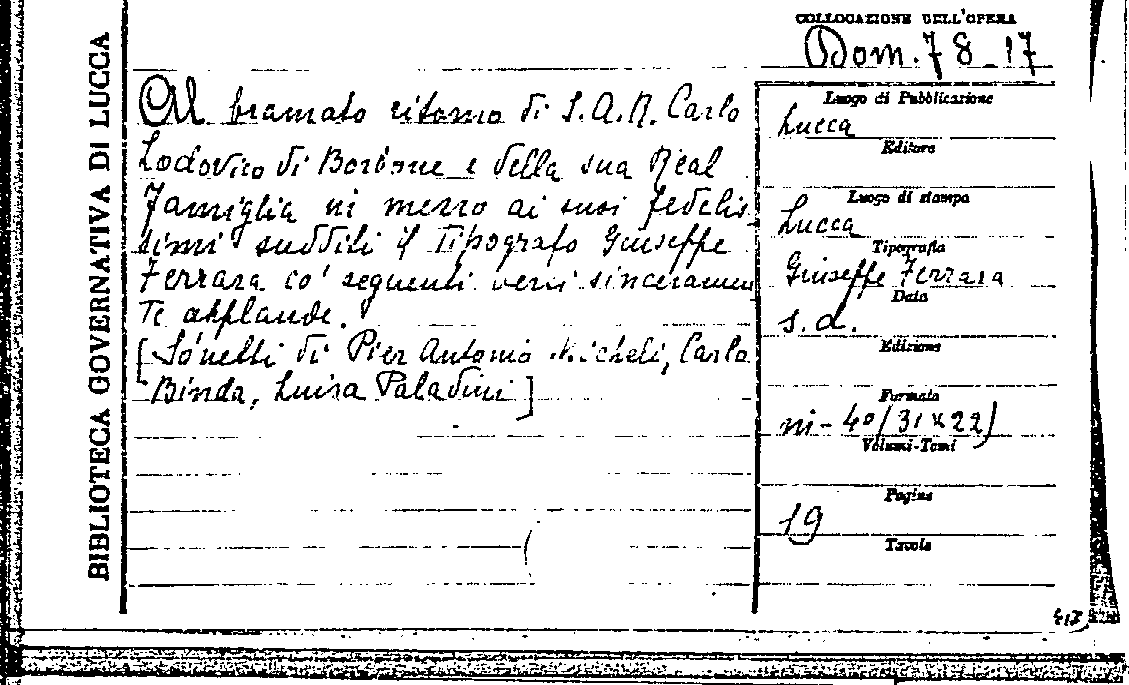 BIBLIOTECA GOVERNATIVA DI LUCCA
COLLOCAZIONE DELL'OPERA
Dom. 78_17
Al bramato ritorno di S.A.R. Carlo
Lodovico di Borbone e della sua Real
Famiglia in mezzo ai suoi fedelis
simi sudditi il Tipografo Giuseppe
Ferrara co' seguenti versi sinceramen
te applaude.
[Sonetti di Pier Antonio Micheli, Carlo
Binda, Luisa Paladini]
Luogo di Pubblicazione
Lucca
Editore
Luogo di stampa
Lucca
Tipografia
Giuseppe Ferrara
Data
s.d.
Edizione
Formato
in-4º (31x22)
Volumi-Tomi
Pagine
19
Tavole